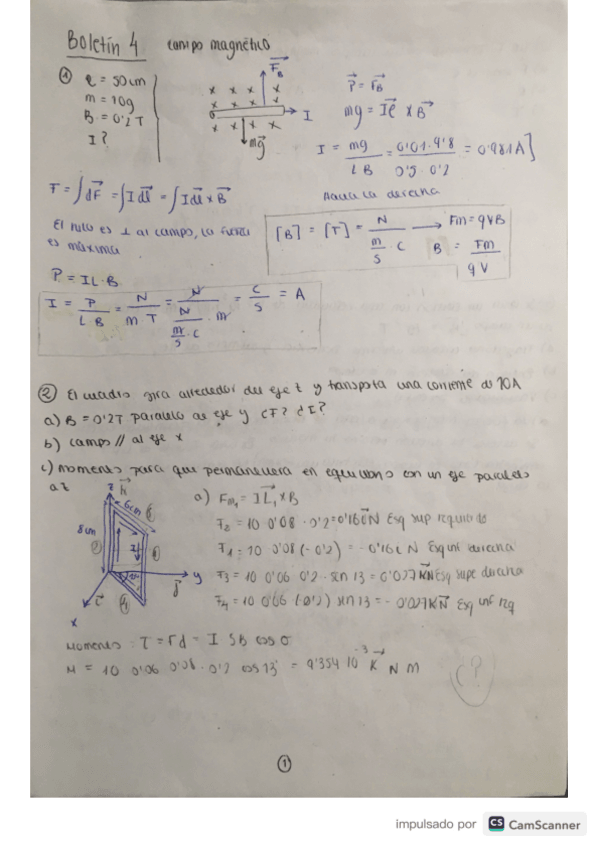 Boletín 4 campo magnético
① l = 50cm
m = 10g
B = 0'2 T
I?
x x x x
F_B
I
mg
P = F_B
mg = Il x B
I = mg / L B = 0'01 · 9'8 / 0'5 · 0'2 = 0'981A]
F = ∫dF = ∫Idl = ∫Idl x B
Hacia la derecha
El hilo es ⊥ al campo, la fuerza
es máxima
[B] = [T] = N / (m/s · C) → Fm = qVB
B = Fm / qV
P = IL·B
I = P / L B = N / m·T = N / (N / (m/s · C) · m) = C/s = A
② El cuadro gira alrededor del eje z y transporta una corriente de 10A
a) B = 0'2T paralelo al eje y ¿F? ¿I?
b) campo // al eje x
c) momento para que permanezca en equilibrio con un eje paralelo
a z
z k
6cm
8cm
I
y
j
i
x
a) Fm₁ = IL₁ x B
F₂ = 10 0'08 · 0'2 = 0'16 N Esq sup izquierda
F₁ = 10 0'08 (-0'2) = -0'16 N Esq inf derecha
F₃ = 10 0'06 0'2 · sin 13 = 0'027 K N Esq supe derecha
F₄ = 10 0'06 (-0'2) sin 13 = -0'027 K N Esq inf izq
Momento: T = Fd = I SB cos σ
M = 10 0'06 0'08 · 0'2 cos 13 = 9'354 10⁻³ K N M
(?)
①
impulsado por CS CamScanner